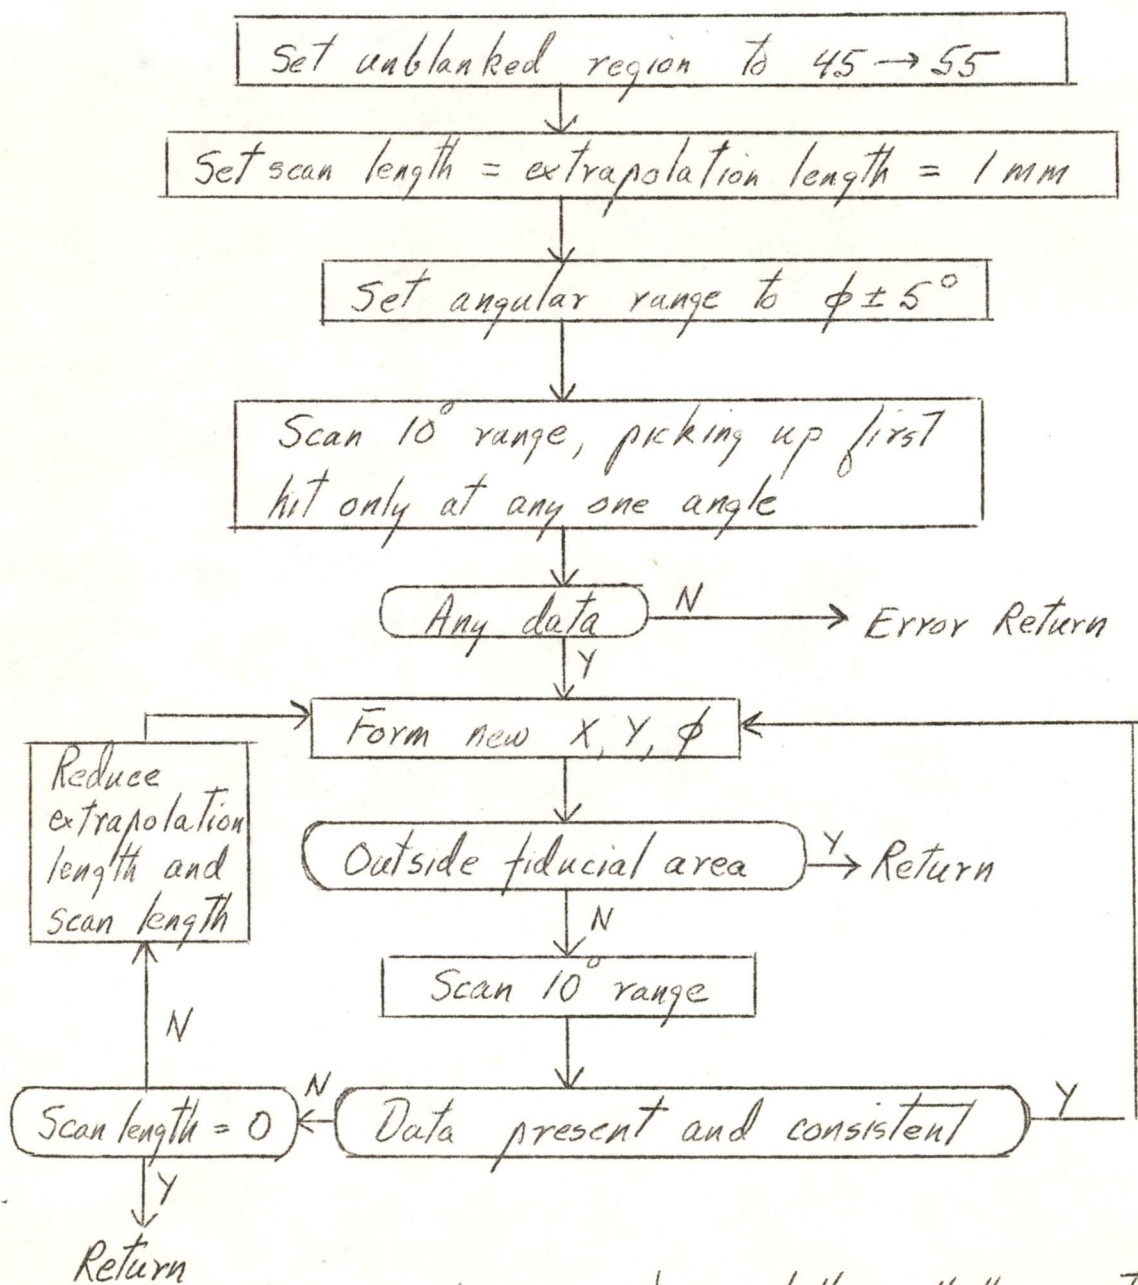 Set unblanked region to 45 → 55
Set scan length = extrapolation length = 1 mm
Set angular range to ϕ ± 5°
Scan 10° range, picking up first
hit only at any one angle
Any data
N
Error Return
Y
Form new X, Y, ϕ
Reduce
extrapolation
length and
scan length
Outside fiducial area
Y
Return
N
Scan 10° range
N
Scan length = 0
N
Data present and consistent
Y
Y
Return